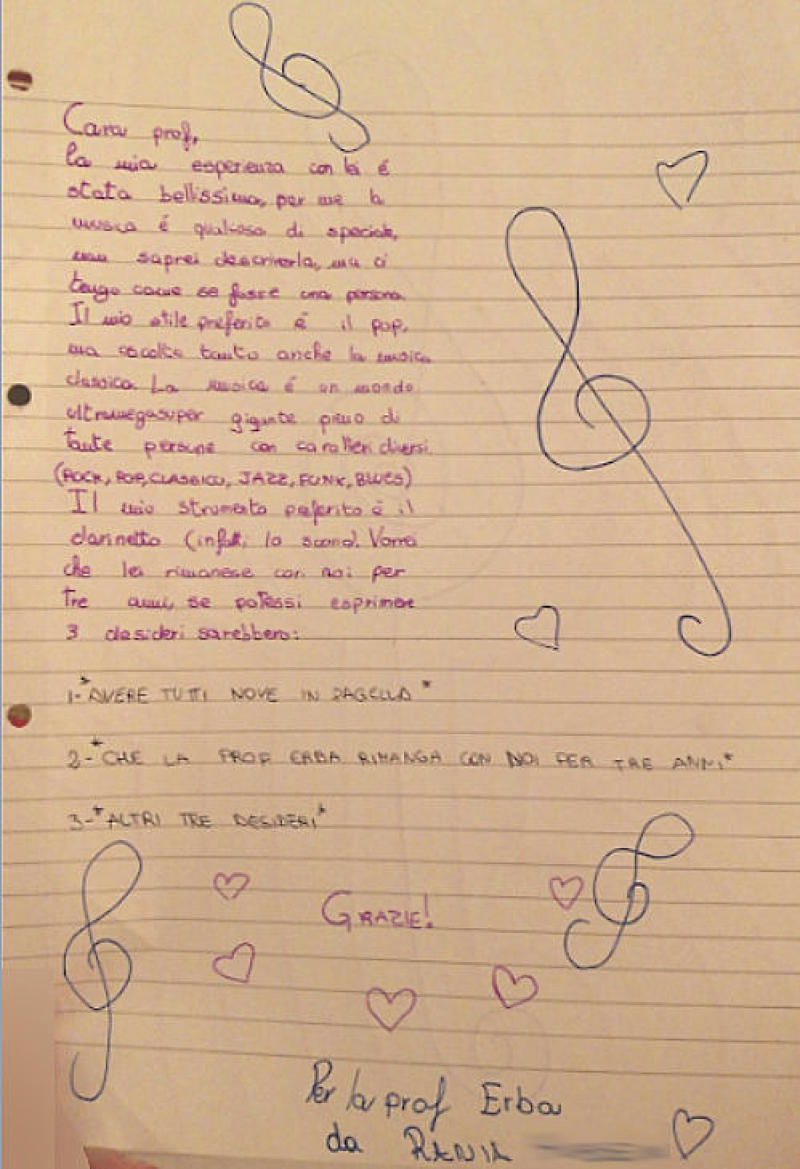 Cara prof,
la mia esperienza con lei é
stata bellissima, per me la
musica é qualcosa di speciale,
non saprei descriverla, ma ci
tengo come se fosse una persona.
Il mio stile preferito é il pop,
ma ascolto tanto anche la musica
classica. La musica é un mondo
ultramegasuper gigante pieno di
tante persone con caratteri diversi.
(ROCK, POP, CLASSICO, JAZZ, FUNK, BLUES)
Il mio strumento preferito é il
clarinetto (infatti lo suono). Vorrei
che lei rimanese con noi per
tre anni, se potessi esprimere
3 desideri sarebbero:
1-*AVERE TUTTI NOVE IN PAGELLA*
2-*CHE LA PROF ERBA RIMANGA CON NOI PER TRE ANNI*
3-*ALTRI TRE DESIDERI*
GRAZIE!
Per la prof Erba
da RANIA